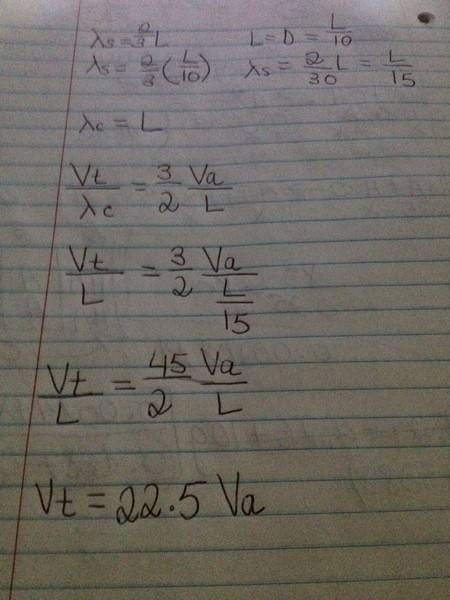 λs = 2/3 L    L = D = L/10
λs = 2/3 (L/10)    λs = 2L/30 = L/15
λc = L
Vt/λc = 3/2 Va/L
Vt/L = 3/2 Va/(L/15)
Vt/L = 45/2 Va/L
Vt = 22.5 Va